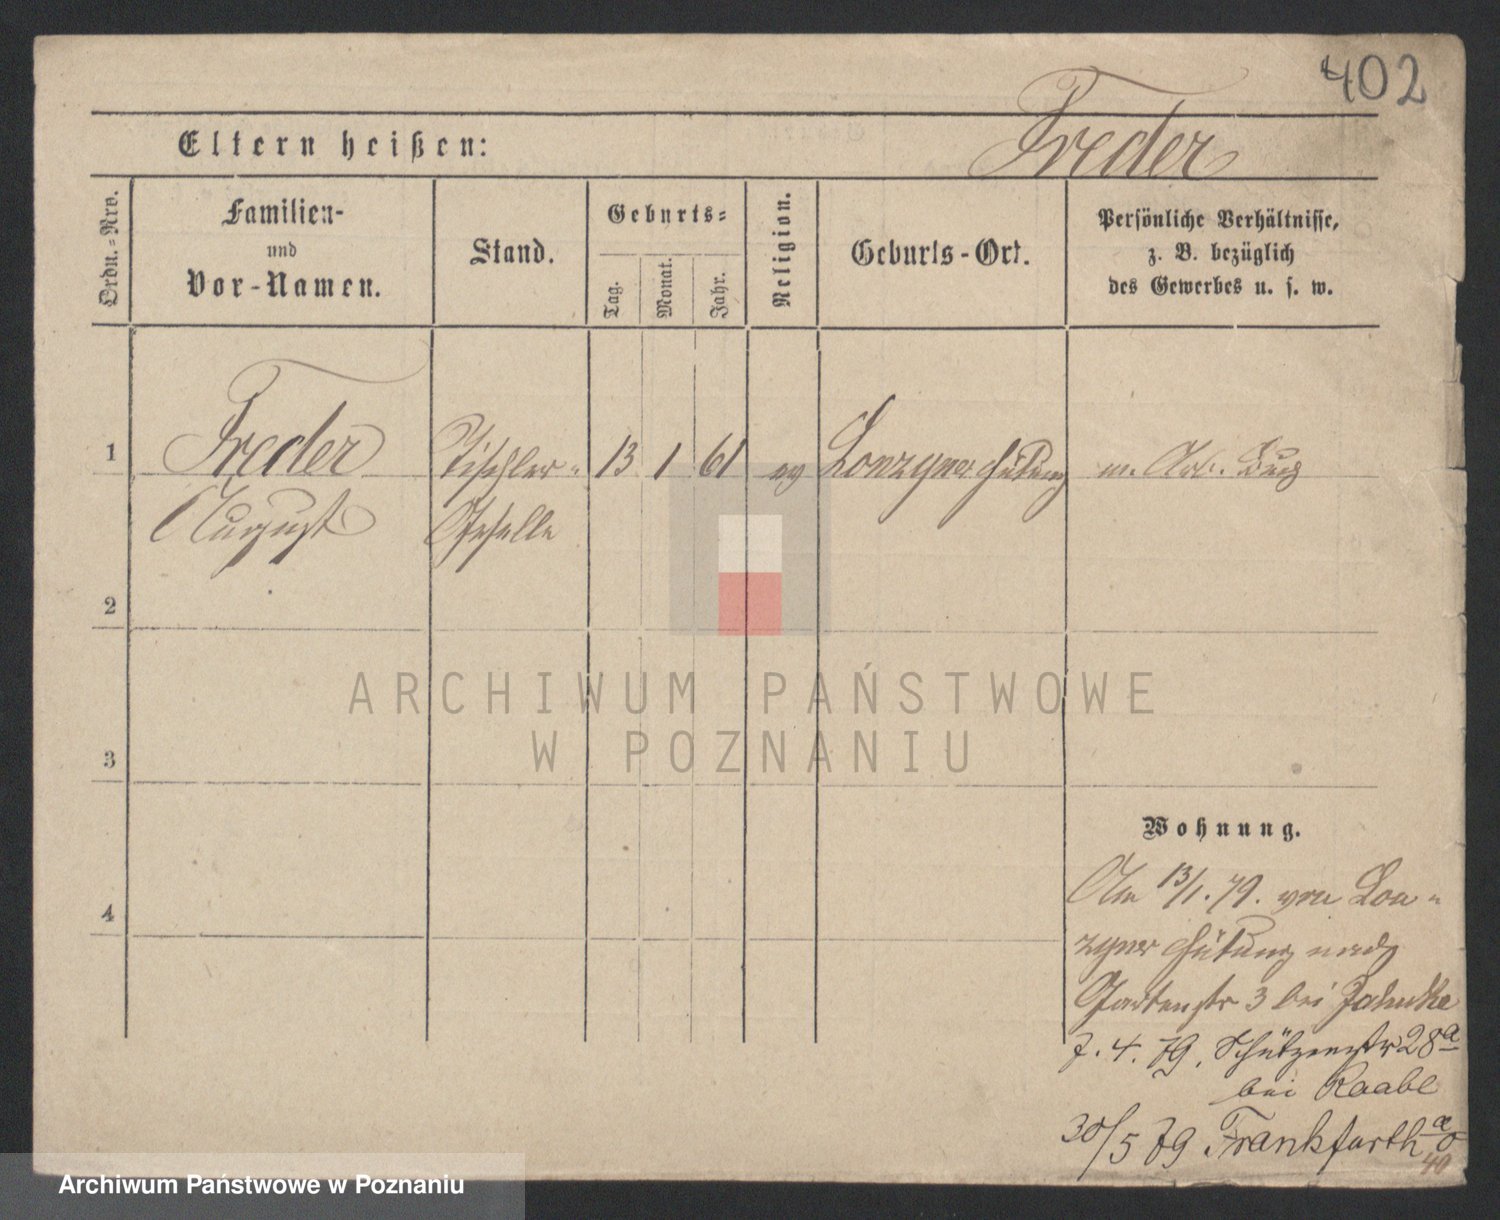 402
Eltern heißen: Freder
Ordn.=Nro.
Familien-
und
Vor-Namen.
Stand.
Geburts=
Tag.
Monat.
Jahr.
Religion.
Geburts-Ort.
Persönliche Verhältnisse,
z. B. bezüglich
des Gewerbes u. s. w.
1 Freder Tischler= 13 1 61 ev Lonzyner Hütung m. Arb.
August Geselle
2
3
4
ARCHIWUM PAŃSTWOWE
W POZNANIU
Wohnung.
Am 13/1.79. von Lon=
zyner Hütung nach
Gartenstr 3 bei Zahnke
7.4.79. Schützenstr 28a
bei Raabe
30/5 79 Frankfurth a/O
40
Archiwum Państwowe w Poznaniu